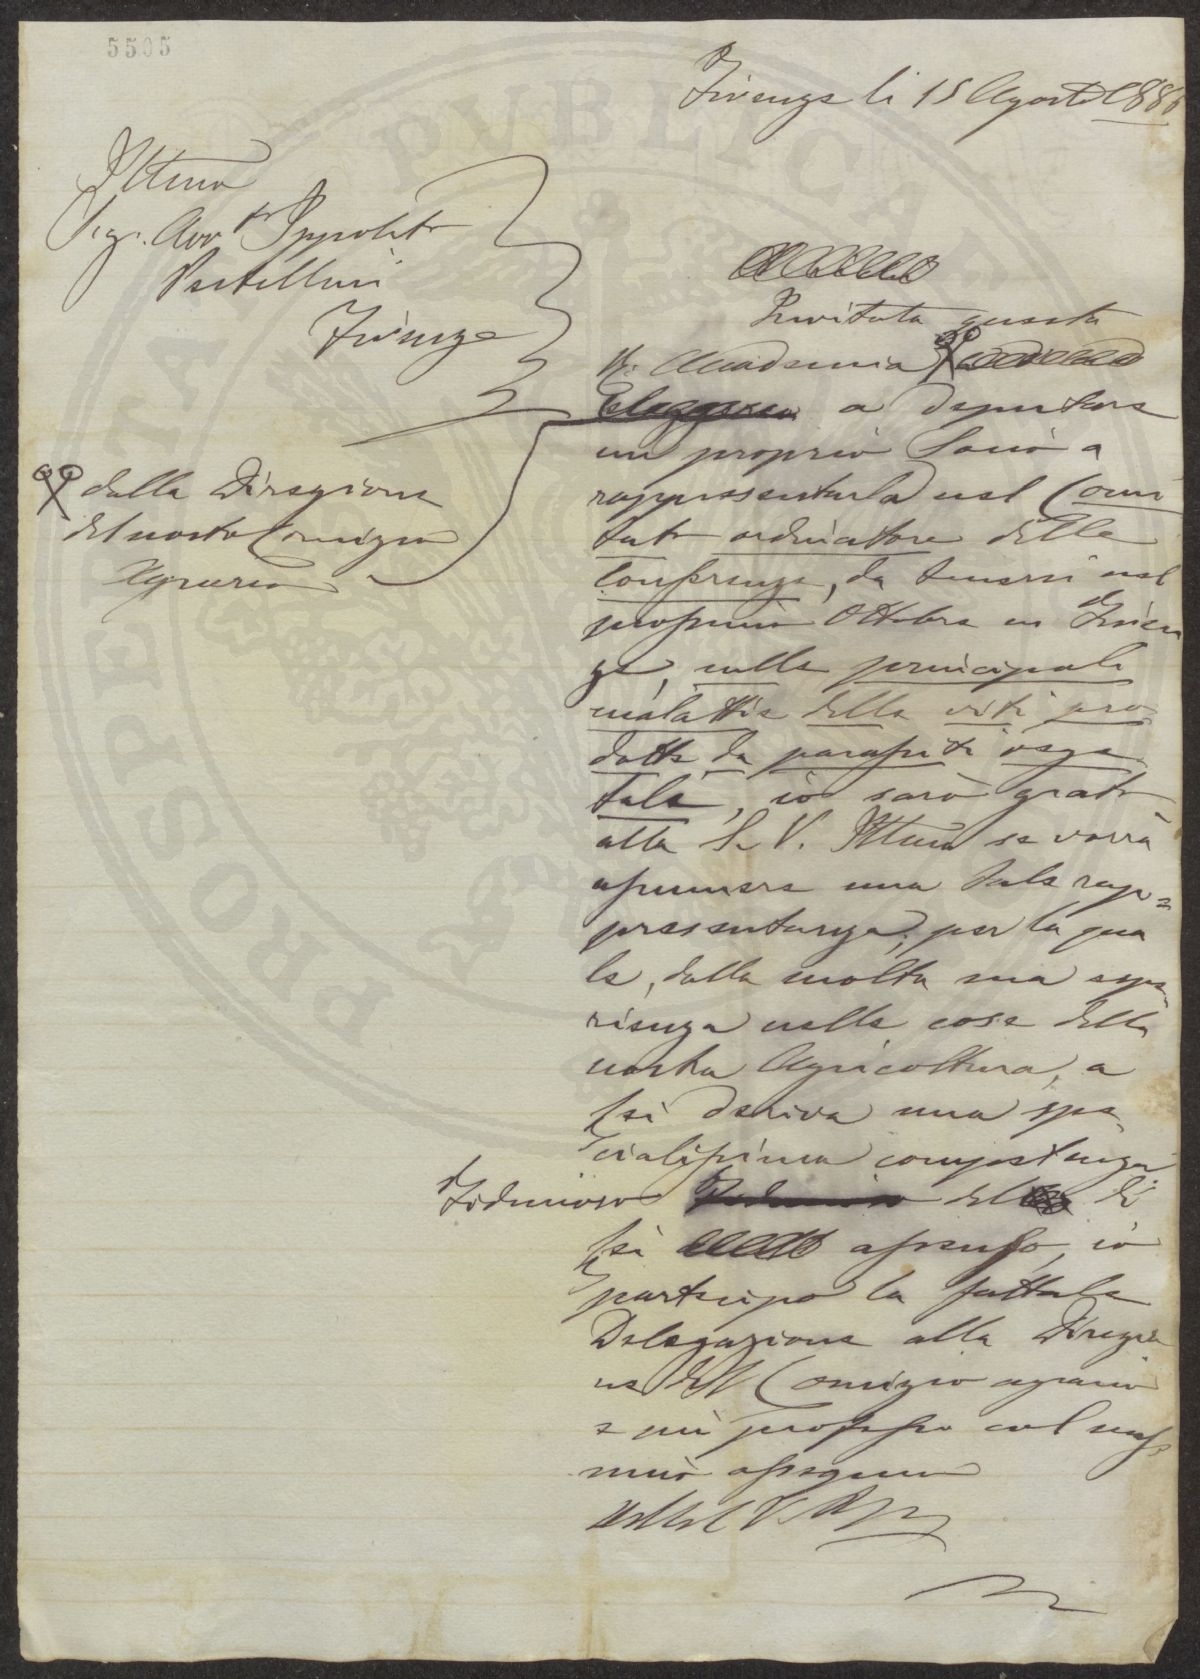 5505
Firenze li 15 Agosto 1886
Illmo
Sig. Avv.to Ippolito
Pestellini
Firenze
Invitata questa
R. Accademia
a deputare
un proprio Socio a
rappresentarla nel Comi
tato ordinatore della
Conferenza, da tenersi nel
prossimo Ottobre in Firen
ze, sulle principali
malattie della viti pro
dotte da parassiti vege
tali, io sarò grato
alla S. V. Illma se vorrà
assumere una tale rap=
presentanza, per la qua
le, dalla molta sua espe
rienza nelle cose della
nostra Agricoltura, a
Lei deriva una spe
cialissima competenza
Fiducioso del di
Lei assenso, io
partecipo la fattale
Delegazione alla Direzio
ne del Comizio agrario
e mi professo col mass
mio ossequio
dalla Direzione
del nostro Comizio
Agrario
PUBLICAE
PROSPERITATI